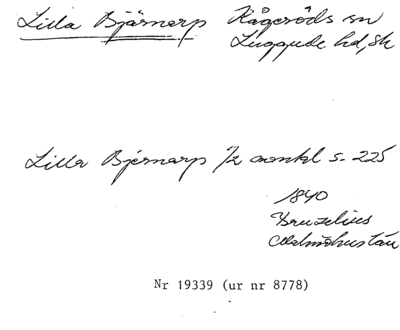 Lilla Bjärnarp Kågeröds sn
Luggude hd, Sk
Lilla Bjernarp 1/2 s. 225
1840
Bruzelius
Malmöhuslän
Nr 19339 (ur nr 8778)